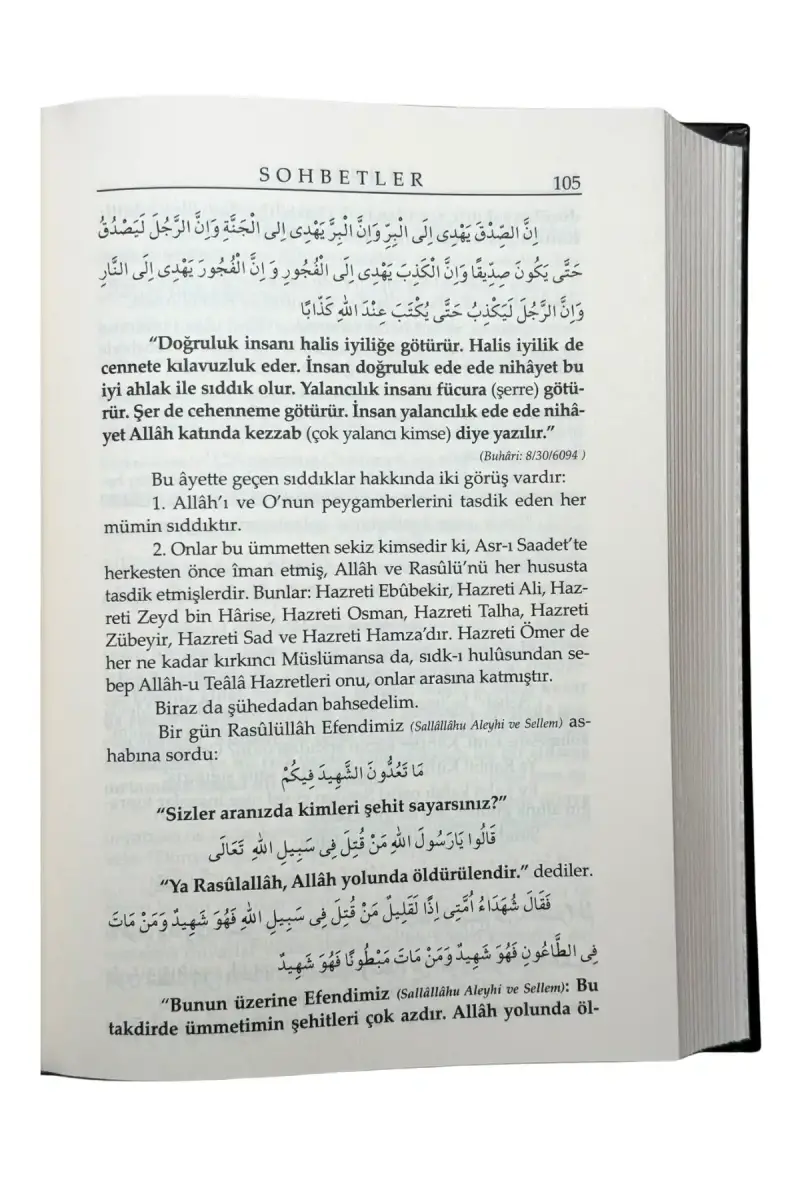 SOHBETLER
105
اِنَّ الصِّدْقَ يَهْدِى اِلَى الْبِرِّ وَاِنَّ الْبِرَّ يَهْدِى اِلى الْجَنَّةِ وَاِنَّ الرَّجُلَ لَيَصْدُقُ
حَتَّى يَكُونَ صِدِّيقًا وَاِنَّ الْكَذِبَ يَهْدِى اِلَى الْفُجُورِ وَ اِنَّ الْفُجُورَ يَهْدِى اِلَى النَّارِ
وَاِنَّ الرَّجُلَ لَيَكْذِبُ حَتَّى يُكْتَبَ عِنْدَ اللهِ كَذَّابًا
“Doğruluk insanı halis iyiliğe götürür. Halis iyilik de
cennete kılavuzluk eder. İnsan doğruluk ede ede nihâyet bu
iyi ahlak ile sıddık olur. Yalancılık insanı fücura (şerre) götü-
rür. Şer de cehenneme götürür. İnsan yalancılık ede ede nihâ-
yet Allâh katında kezzab (çok yalancı kimse) diye yazılır.”
(Buhâri: 8/30/6094 )
Bu âyette geçen sıddıklar hakkında iki görüş vardır:
1. Allâh’ı ve O’nun peygamberlerini tasdik eden her
mümin sıddıktır.
2. Onlar bu ümmetten sekiz kimsedir ki, Asr-ı Saadet’te
herkesten önce îman etmiş, Allâh ve Rasûlü’nü her hususta
tasdik etmişlerdir. Bunlar: Hazreti Ebûbekir, Hazreti Ali, Haz-
reti Zeyd bin Hârise, Hazreti Osman, Hazreti Talha, Hazreti
Zübeyir, Hazreti Sad ve Hazreti Hamza’dır. Hazreti Ömer de
her ne kadar kırkıncı Müslümansa da, sıdk-ı hulûsundan se-
bep Allâh-u Teâlâ Hazretleri onu, onlar arasına katmıştır.
Biraz da şühedadan bahsedelim.
Bir gün Rasûlüllâh Efendimiz (Sallâllâhu Aleyhi ve Sellem) as-
habına sordu:
مَا تَعُدُّونَ الشَّهِيدَ فِيكُمْ
“Sizler aranızda kimleri şehit sayarsınız?”
قَالُوا يَارَسُولَ اللهِ مَنْ قُتِلَ فِى سَبِيلِ اللهِ تَعَالَى
“Ya Rasûlallâh, Allâh yolunda öldürülendir.” dediler.
فَقَالَ شُهَدَاءُ اُمَّتِى اِذًا لَقَلِيلٌ مَنْ قُتِلَ فِى سَبِيلِ اللهِ فَهُوَ شَهِيدٌ وَمَنْ مَاتَ
فِى الطَّاعُونِ فَهُوَ شَهِيدٌ وَمَنْ مَاتَ مَبْطُونًا فَهُوَ شَهِيدٌ
“Bunun üzerine Efendimiz (Sallâllâhu Aleyhi ve Sellem): Bu
takdirde ümmetimin şehitleri çok azdır. Allâh yolunda öl-